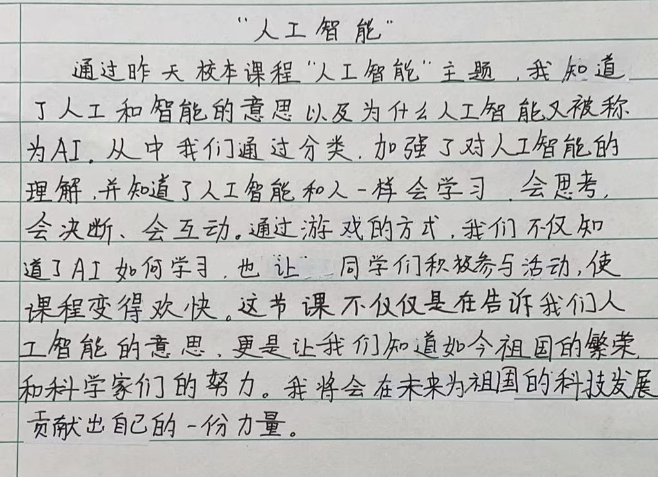 “人工智能”
通过昨天校本课程“人工智能”主题，我知道
了人工和智能的意思以及为什么人工智能又被称
为AI。从中我们通过分类，加强了对人工智能的
理解，并知道了人工智能和人一样会学习，会思考，
会决断、会互动。通过游戏的方式，我们不仅知
道了AI如何学习，也让 同学们积极参与活动，使
课程变得欢快。这节课不仅仅是在告诉我们人
工智能的意思，更是让我们知道如今祖国的繁荣
和科学家们的努力。我将会在未来为祖国的科技发展
贡献出自己的一份力量。